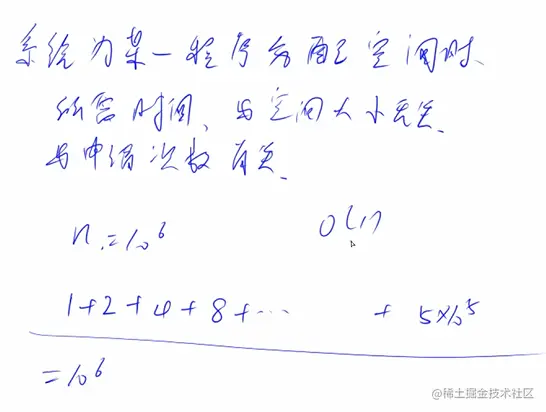 系统为某一程序分配空间时、
所需时间、与空间大小无关.
与申请次数有关.
n = 10^6
O(1)
1+2+4+8+... + 5×10^5
= 10^6
@稀土掘金技术社区